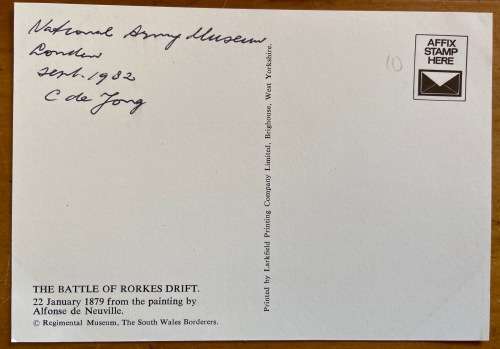 National Army Museum
London
Sept. 1982
C de Jong
AFFIX
STAMP
HERE
(1)
Printed by Larkfield Printing Company Limited, Brighouse, West Yorkshire.
THE BATTLE OF RORKES DRIFT.
22 January 1879 from the painting by
Alfonse de Neuville.
© Regimental Museum, The South Wales Borderers.